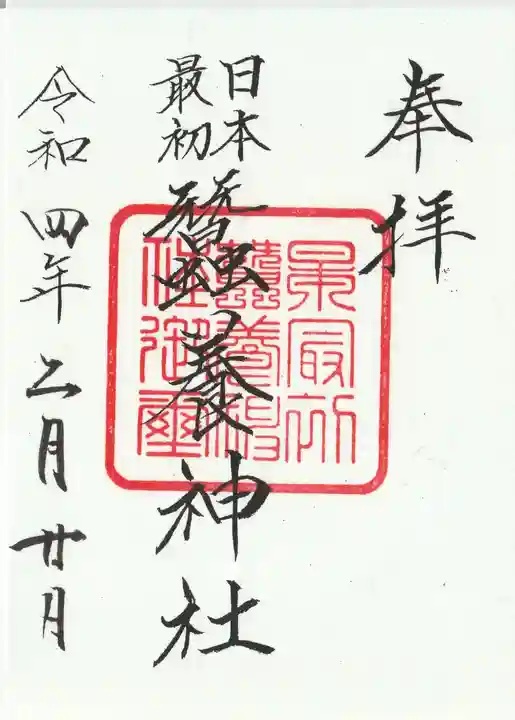 奉拝
日本
最初
蠶養神社
令和四年二月廿月